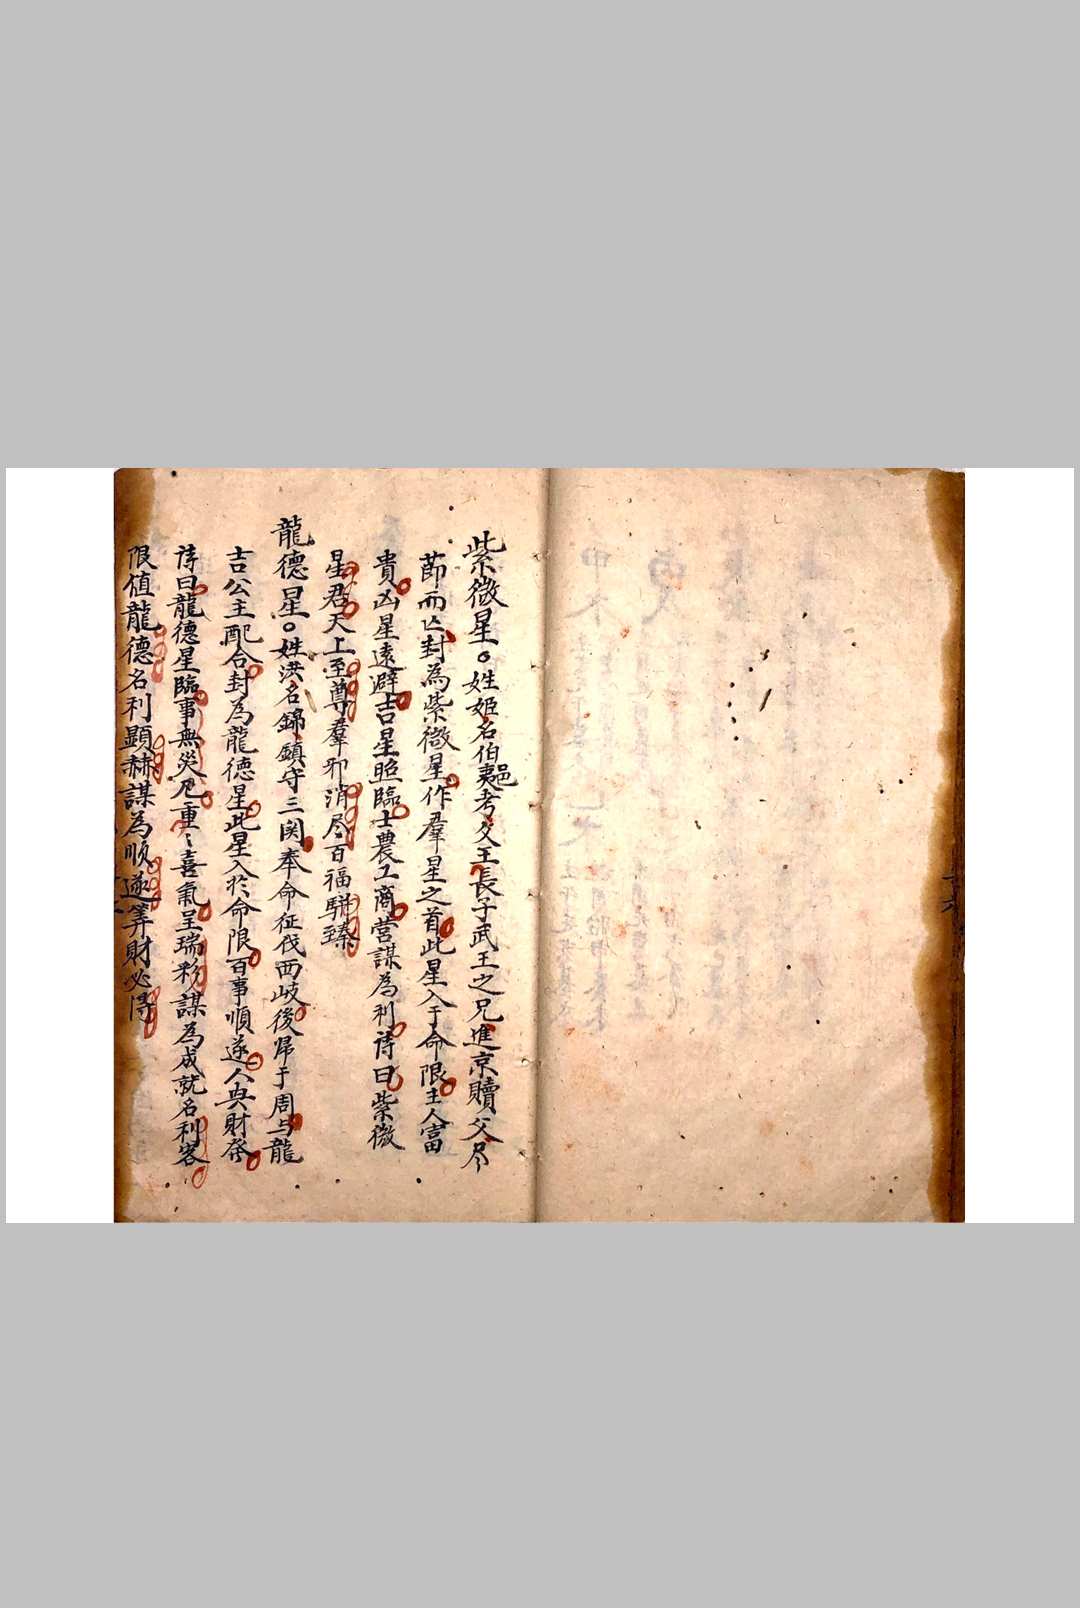 紫微星○姓姬名伯夷邑考文王長子武王之兄進京贖父尽
節而亡封為紫微星作羣星之首此星入于命限主人富
貴凶星遠避吉星照臨士農工商營謀為利詩曰紫微
星君天上至尊羣邪消尽百福駢臻
龍德星○姓洪名錦鎮守三関奉命征伐西岐後帰于周与龍
吉公主配合封為龍德星此星入於命限百事順遂人興財發
詩曰龍德星臨事無災危重〻喜氣呈瑞彩謀為成就名利客
限值龍德名利顯赫謀為順遂筭財必得